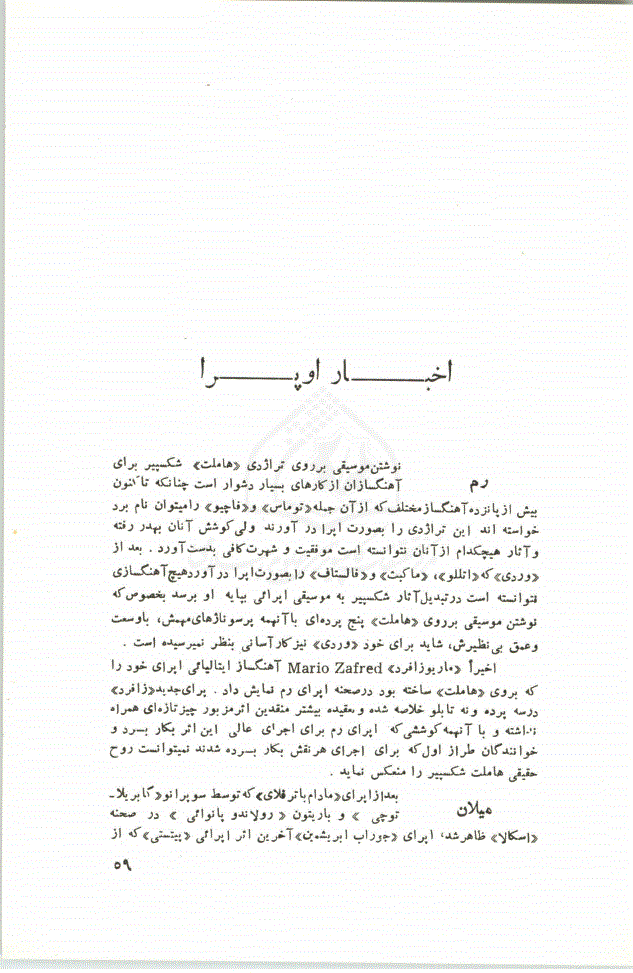 اخبــــار اوپــــرا
رم
نوشتن موسیقی برروی تراژدی «هاملت» شکسپیر برای
آهنگسازان از کارهای بسیار دشوار است چنانکه تا کنون
بیش از پانزده آهنگساز مختلف که از آن جمله «توماس» و «فاچیو» را میتوان نام برد
خواسته اند این تراژدی را بصورت اپرا در آورند ولی کوشش آنان بهدر رفته
و آثار هیچکدام از آنان نتوانسته است موفقیت و شهرت کافی بدست آورد . بعد از
«وردی» که «اتللو»، «ماکبت» و «فالستاف» را بصورت اپرا در آورد هیچ آهنگسازی
نتوانسته است در تبدیل آثار شکسپیر به موسیقی اپرائی بپایه او برسد بخصوص که
نوشتن موسیقی برروی «هاملت» پنج پرده‌ای با آنهمه پرسوناژهای مهمش، باوسعت
وعمق بی‌نظیرش، شاید برای خود «وردی» نیز کار آسانی بنظر نمیرسیده است .
اخیراً «ماریو زافرد» Mario Zafred آهنگساز ایتالیائی اپرای خود را
که بروی «هاملت» ساخته بود در صحنه اپرای رم نمایش داد . برای جدید «زافرد»
در سه پرده و نه تابلو خلاصه شده و بعقیده بیشتر منقدین اثر مزبور چیز تازه‌ای همراه
نداشته و با آنهمه کوششی که اپرای رم برای اجرای عالی این اثر بکار بسرد و
خوانندگان طراز اول که برای اجرای هر نقش بکار بسرده شدند نمیتوانست روح
حقیقی هاملت شکسپیر را منعکس نماید .
میلان
بعد از اپرای «مادام باترفلای» که توسط سوپرانو «گابریلا ـ
توچی » و باریتون « رولاندو پانوائی » در صحنه
«اسکالا» ظاهر شد، اپرای «جوراب ابریشمین» آخرین اثر اپرائی «پیتستی» که از
۵۹